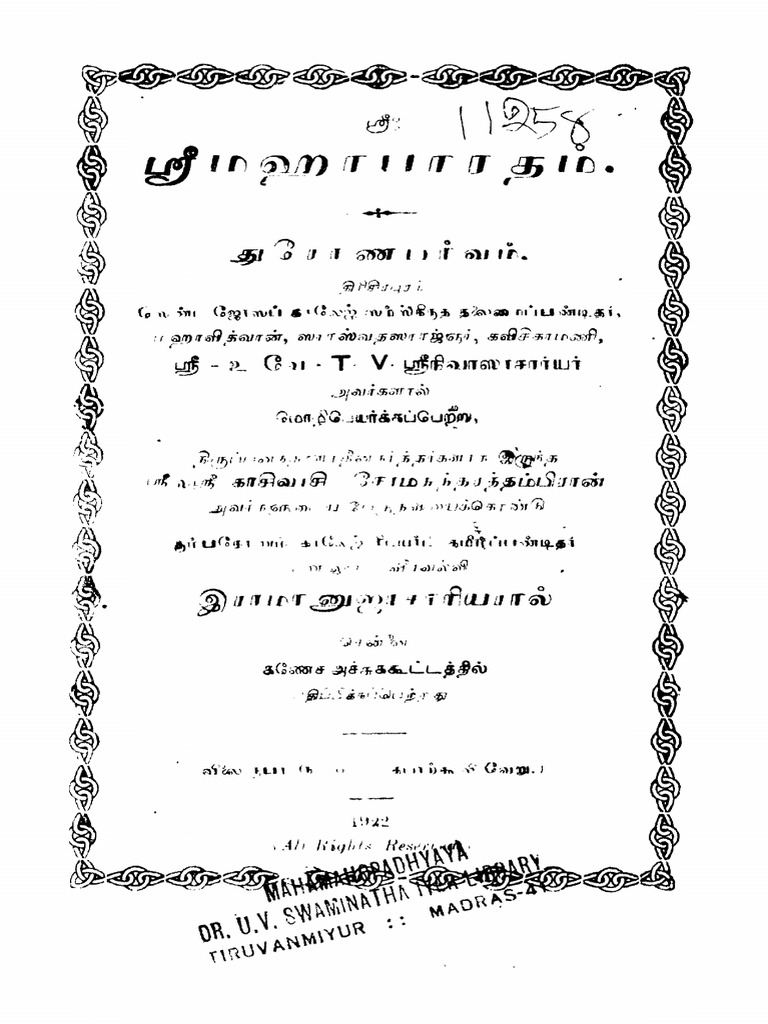 ஸ்ரீ:
11258
ஸ்ரீமஹாபாரதம்.
துரோணபர்வம்.
ஜோஸப் காலேஜ் ஸம்ஸ்கிருத தலைமைப்பண்டிதர்,
மஹாவித்வான், ஸாரஸ்வதஸாரஜ்ஞர், கவிசிகாமணி,
ஸ்ரீ-உ வே - T. V. ஸ்ரீநிவாஸாசார்யர்
அவர்களால்
மொழிபெயர்க்கப்பெற்று,
இருந்த
ஸ்ரீலஸ்ரீ காசிவாசி சோமசுந்தரத்தம்பிரான்
அவர்களுடைய
கும்பகோணம் காலேஜ் தமிழ்ப்பண்டிதர்
இராமானுஜாசாரியரால்
சென்னை
கணேச அச்சுக்கூட்டத்தில்
பதிப்பிக்கப்பெற்றது
விலை ரூபா வேறு.)
1922
(All Rights Reserved.)
MAHAMAHOPADHYAYA
DR. U.V. SWAMINATHA IYER LIBRARY
TIRUVANMIYUR :: MADRAS-41